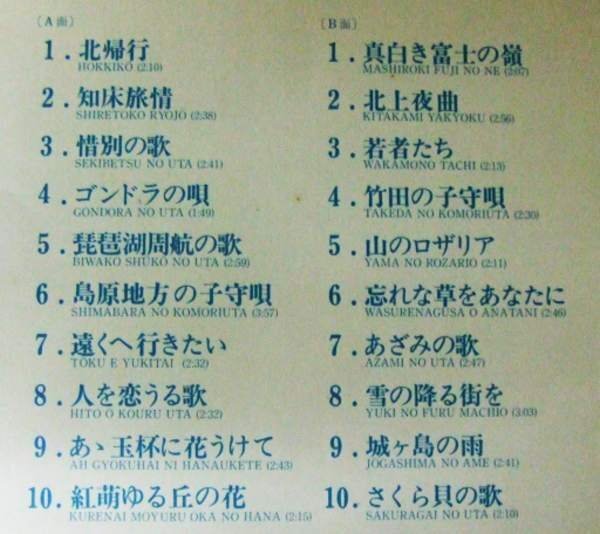 〔A面〕
1.北帰行
HOKKIKO (2:10)
2.知床旅情
SHIRETOKO RYOJO (2:38)
3.惜別の歌
SEKIBETSU NO UTA (2:41)
4.ゴンドラの唄
GONDORA NO UTA (1:49)
5.琵琶湖周航の歌
BIWAKO SHUKO NO UTA (2:59)
6.島原地方の子守唄
SHIMABARA NO KOMORIUTA (3:57)
7.遠くへ行きたい
TOKU E YUKITAI (2:32)
8.人を恋うる歌
HITO O KOURU UTA (2:32)
9.あゝ玉杯に花うけて
AH GYOKUHAI NI HANAUKETE (2:43)
10.紅萌ゆる丘の花
KURENAI MOYURU OKA NO HANA (2:15)
〔B面〕
1.真白き富士の嶺
MASHIROKI FUJI NO NE (2:07)
2.北上夜曲
KITAKAMI YAKYOKU (2:56)
3.若者たち
WAKAMONO TACHI (2:13)
4.竹田の子守唄
TAKEDA NO KOMORIUTA (2:30)
5.山のロザリア
YAMA NO ROZARIO (2:11)
6.忘れな草をあなたに
WASURENAGUSA O ANATANI (2:46)
7.あざみの歌
AZAMI NO UTA (2:47)
8.雪の降る街を
YUKI NO FURU MACHIO (3:03)
9.城ヶ島の雨
JOGASHIMA NO AME (2:41)
10.さくら貝の歌
SAKURAGAI NO UTA (2:10)